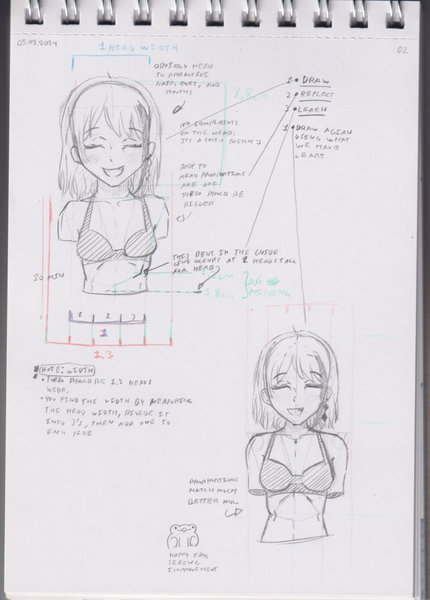 05.03.2024
02
1 HEAD WIDTH
OBVIOUSLY NEED
TO PRACTICE
HAIR, EYES, AND
MOUTHS
3.8cm
1 DRAW
2 REFLECT
3 LEARN
NO COMPLAINTS
ON THE HEAD.
IT'S A GOOD SKETCH :)
1 DRAW AGAIN
USING WHAT
WE HAVE
LEARNT
BODY TO
HEAD PROPORTIONS
ARE OFF
TORSO SHOULD BE
BIGGER
20 MIN
THIS BENT IN THE GUIDE
LINE OCCURS AT 2 HEADS TALL
AKA HERE
3.8cm
0.6
MISSING
1 2 3
1
1.3
NOTE: WIDTH
• THEY SHOULD BE 1.3 HEADS
WIDE.
• YOU FIND THE WIDTH BY MEASURING
THE HEAD WIDTH, DIVIDE IT
INTO 3'S, THEN ADD ONE TO
EACH SIDE
PROPORTIONS
MATCH MUCH
BETTER NOW.
HAPPY FROG
SEEING
IMPROVEMENT